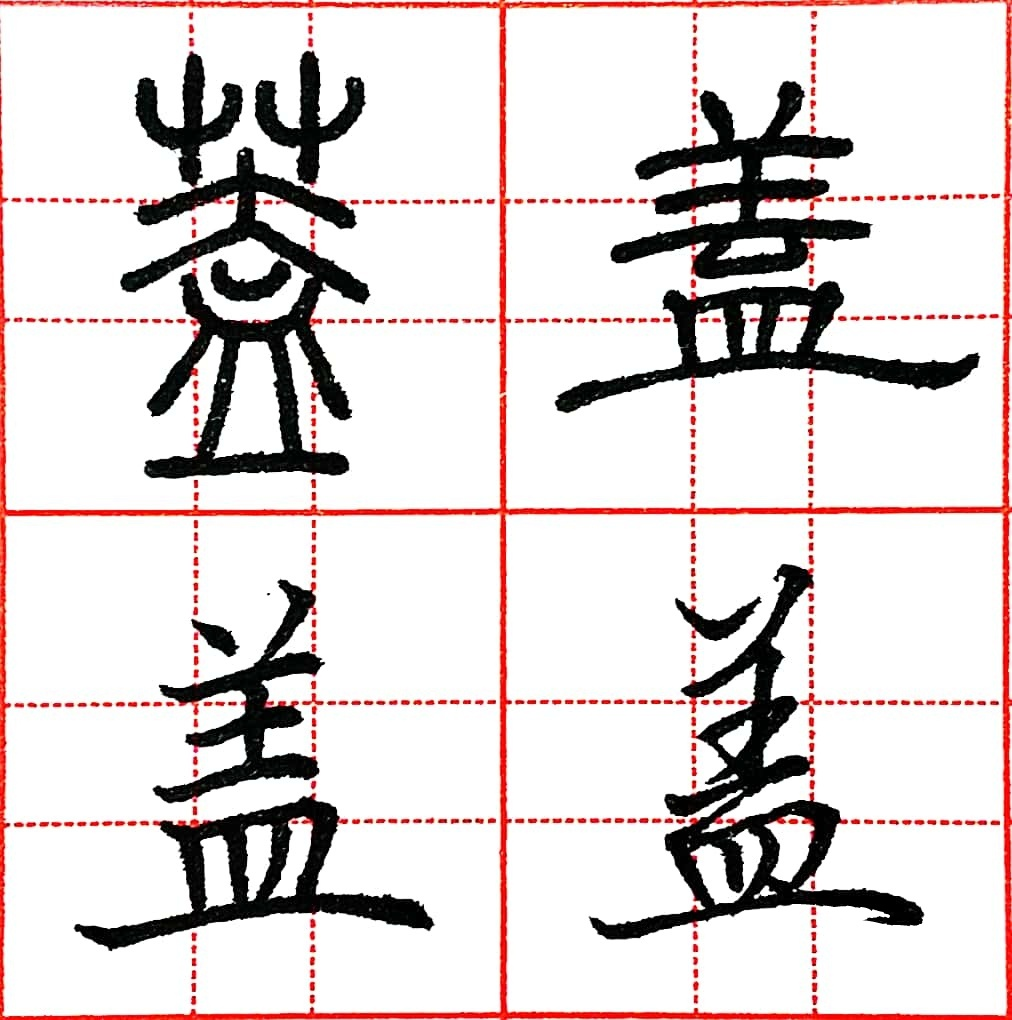 蓋盖
盖盖